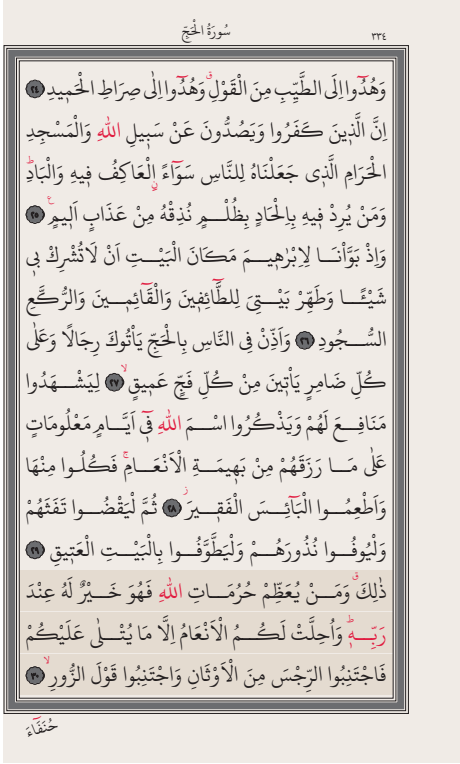 سُورَةُ الْحَجّ
٣٣٤
وَهُدُٓوا اِلَى الطَّيِّبِ مِنَ الْقَوْلِۚ وَهُدُٓوا اِلٰى صِرَاطِ الْحَم۪يدِ ﴿٢٤﴾
اِنَّ الَّذ۪ينَ كَفَرُوا وَيَصُدُّونَ عَنْ سَب۪يلِ اللّٰهِ وَالْمَسْجِدِ
الْحَرَامِ الَّذ۪ي جَعَلْنَاهُ لِلنَّاسِ سَوَٓاءًۨ الْعَاكِفُ ف۪يهِ وَالْبَادِۜ
وَمَنْ يُرِدْ ف۪يهِ بِاِلْحَادٍ بِظُلْمٍ نُذِقْهُ مِنْ عَذَابٍ اَل۪يمٍ۟ ﴿٢٥﴾
وَاِذْ بَوَّأْنَا لِاِبْرٰه۪يمَ مَكَانَ الْبَيْتِ اَنْ لَاتُشْرِكْ ب۪ي
شَيْـًٔا وَطَهِّرْ بَيْتِيَ لِلطَّٓائِف۪ينَ وَالْقَٓائِم۪ينَ وَالرُّكَّعِ
السُّجُودِ ﴿٢٦﴾ وَاَذِّنْ فِي النَّاسِ بِالْحَجِّ يَأْتُوكَ رِجَالًا وَعَلٰى
كُلِّ ضَامِرٍ يَأْت۪ينَ مِنْ كُلِّ فَجٍّ عَم۪يقٍۙ ﴿٢٧﴾ لِيَشْهَدُوا
مَنَافِعَ لَهُمْ وَيَذْكُرُوا اسْمَ اللّٰهِ ف۪ٓي اَيَّامٍ مَعْلُومَاتٍ
عَلٰى مَا رَزَقَهُمْ مِنْ بَه۪يمَةِ الْاَنْعَامِۚ فَكُلُوا مِنْهَا
وَاَطْعِمُوا الْبَٓائِسَ الْفَق۪يرَۘ ﴿٢٨﴾ ثُمَّ لْيَقْضُوا تَفَثَهُمْ
وَلْيُوفُوا نُذُورَهُمْ وَلْيَطَّوَّفُوا بِالْبَيْتِ الْعَت۪يقِ ﴿٢٩﴾
ذٰلِكَۗ وَمَنْ يُعَظِّمْ حُرُمَاتِ اللّٰهِ فَهُوَ خَيْرٌ لَهُ عِنْدَ
رَبِّه۪ۜ وَاُحِلَّتْ لَكُمُ الْاَنْعَامُ اِلَّا مَا يُتْلٰى عَلَيْكُمْ
فَاجْتَنِبُوا الرِّجْسَ مِنَ الْاَوْثَانِ وَاجْتَنِبُوا قَوْلَ الزُّورِۙ ﴿٣٠﴾
حُنَفَٓاءَ